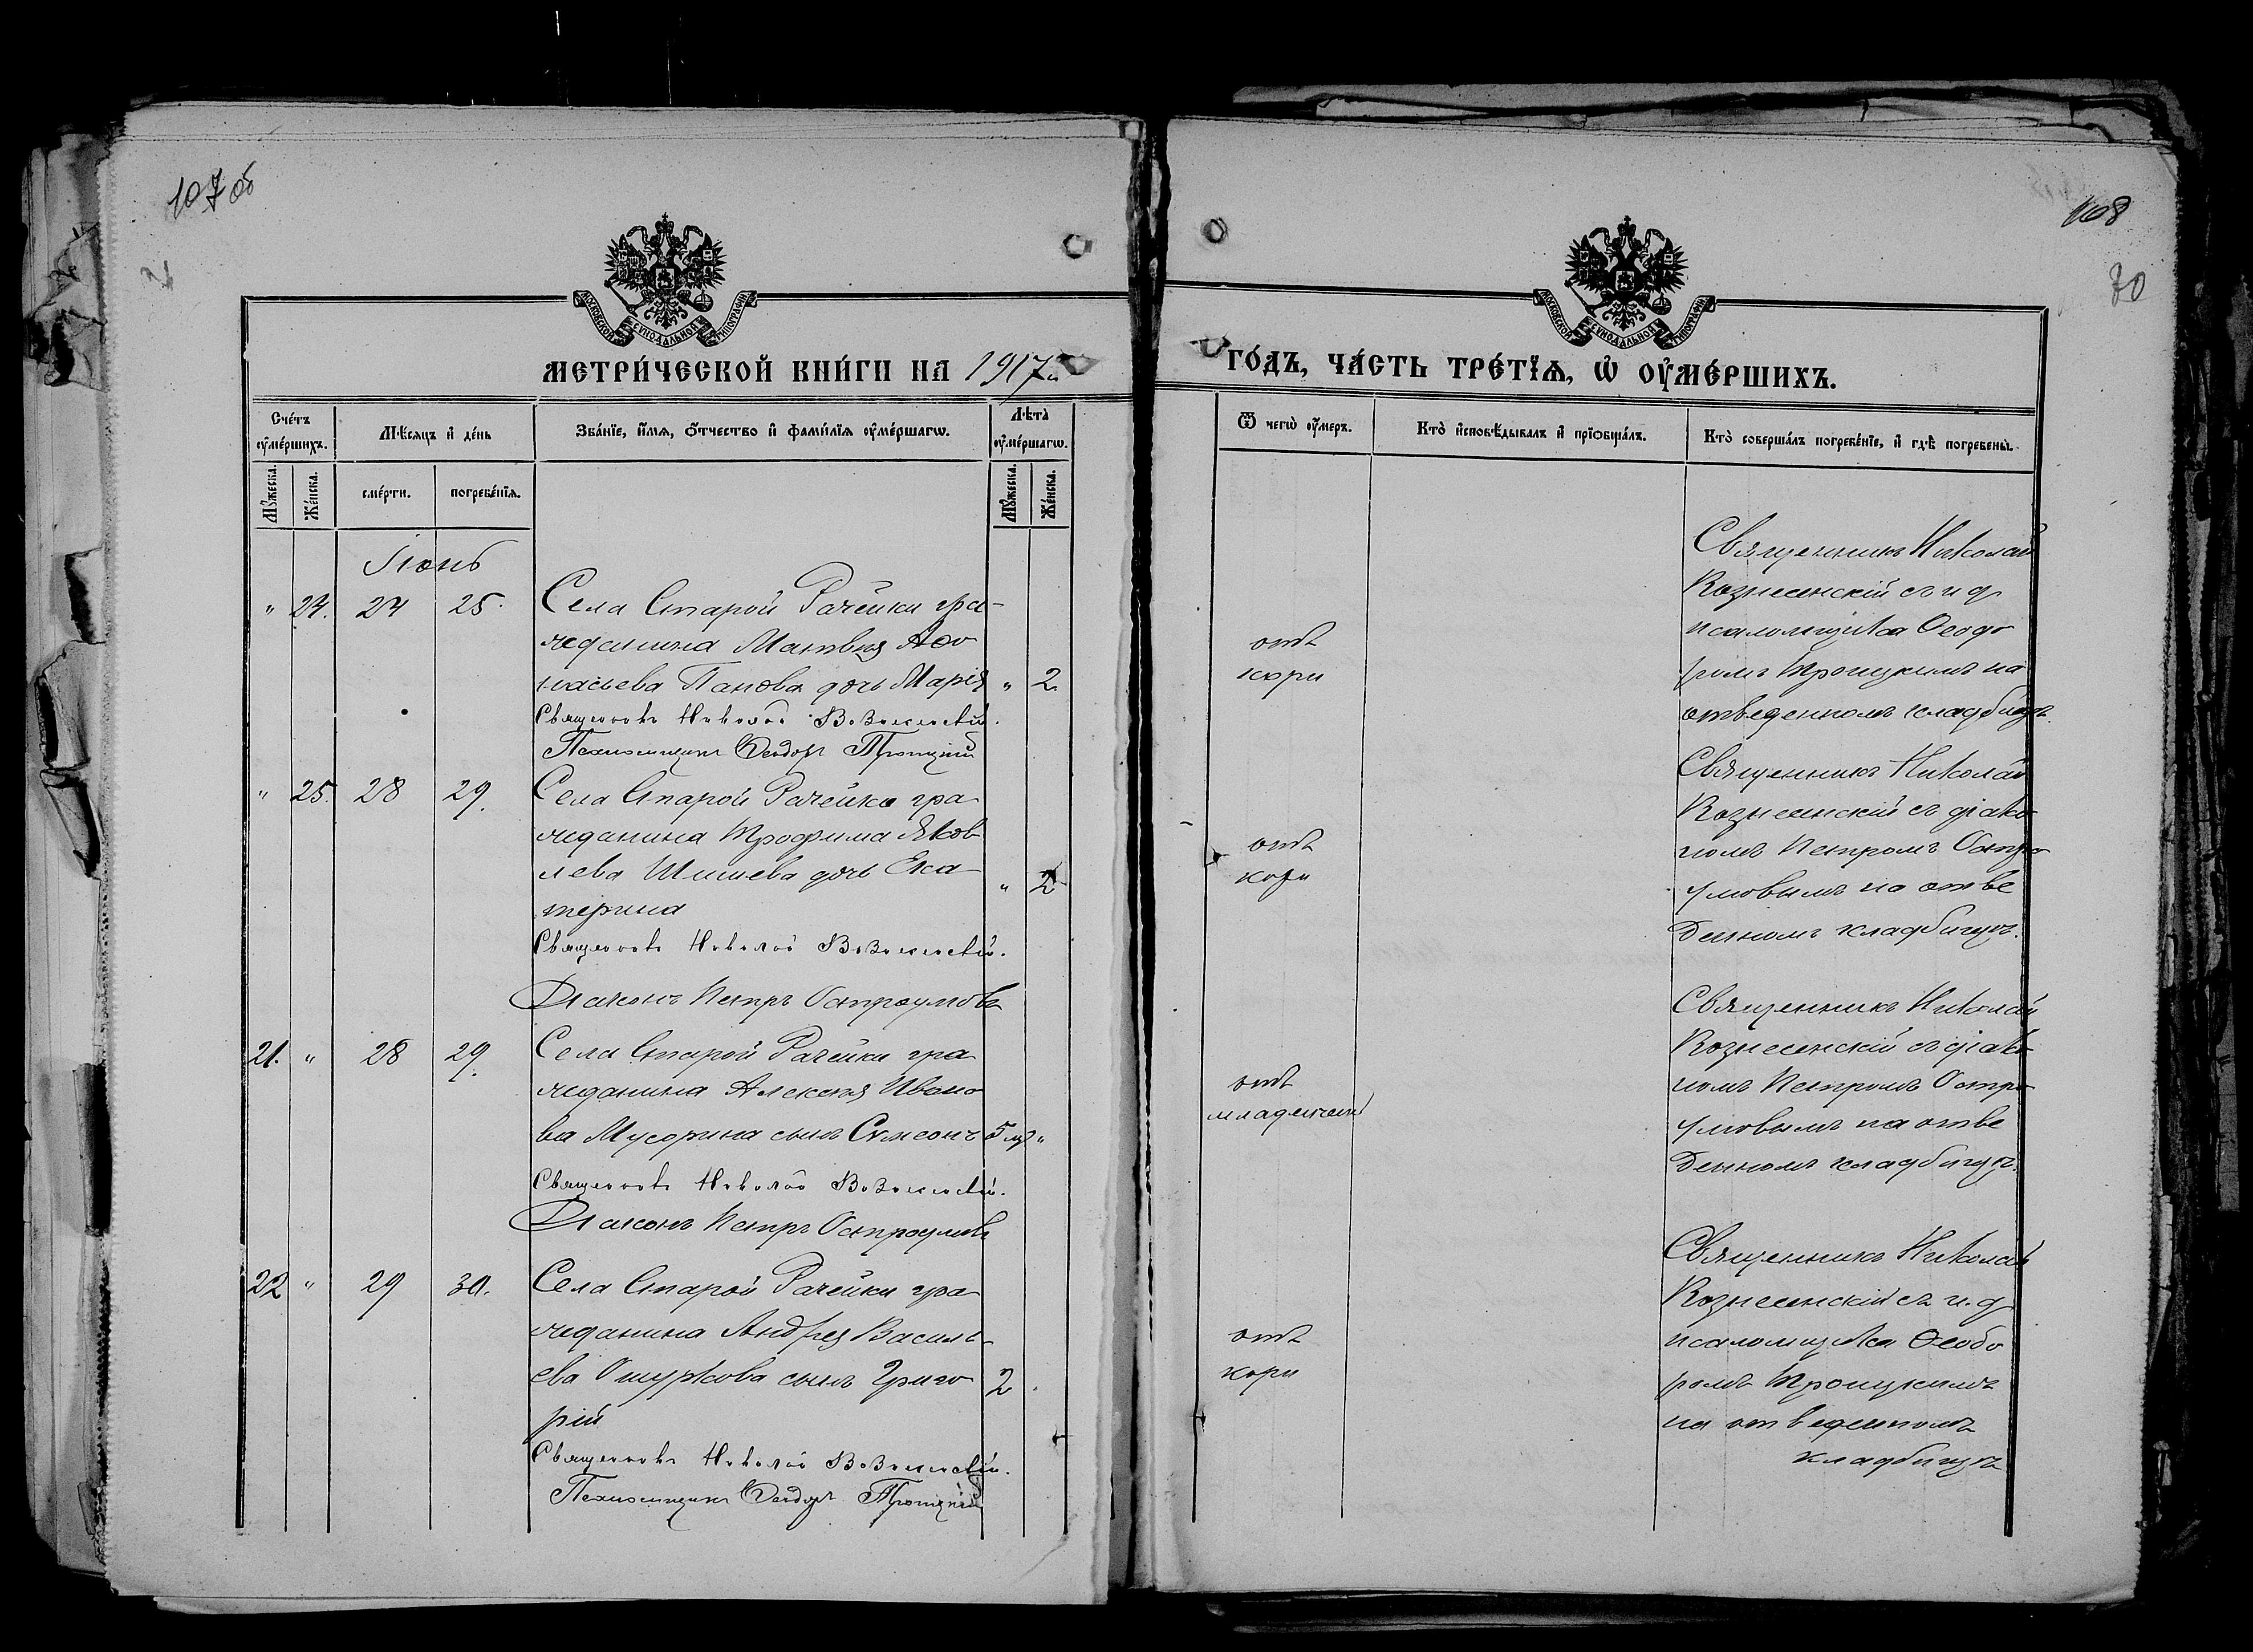 107 об
МОСКОВСКОЙ СѴНОДАЛЬНОЙ ТИПОГРАФІИ
МЕТРИ́ЧЕСКОЙ КНИ́ГИ НА 1917
Сче́тъ ᲂу҆ме́ршихъ.
Мѣ́сѧцъ и҆ де́нь
Зва́нїе, и҆́мѧ, ѻ҆́тчество и҆ фами́лїѧ ᲂу҆ме́ршагѡ.
Лѣ́та ᲂу҆ме́ршагѡ.
Мꙋ́жеска.
Же́нска.
сме́рти.
погребе́нїѧ.
Мꙋ́жеска.
Же́нска.
Іюнь
" 24. 24 25. Села Старой Рачейки гра-
жданина Матвѣя Аѳо
насьева Панова дочь Марія " 2
Священникъ Николай Вознесенскій.
Псаломщикъ Ѳеодоръ Троицкій
" 25. 28 29. Села Старой Рачейки гра
жданина Трофима Яков
лева Шишева дочь Ека " 2
терина
Священникъ Николай Вознесенскій.
Діаконъ Петръ Остроумовъ
21. " 28 29. Села Старой Рачейки гра
жданина Алексѣя Ивано
ва Мусорина сынъ Сѵмеонъ 5 м "
Священникъ Николай Вознесенскій.
Діаконъ Петръ Остроумовъ
22 " 29 30. Села Старой Рачейки гра
жданина Андрея Василь
ева Ошуркова сынъ Григо 2
рій
Священникъ Николай Вознесенскій.
Псаломщикъ Ѳеодоръ Троицкій
108
МОСКОВСКОЙ СѴНОДАЛЬНОЙ ТИПОГРАФІИ
ГО́ДЪ, ЧА́СТЬ ТРЕ́ТЇѦ, Ѡ҆ ОУ҆МЕ́РШИХЪ.
Ѿ чегѡ̀ ᲂу҆́меръ.
Кто̀ и҆сповѣ́дывалъ и҆ прїѡбща́лъ.
Кто̀ соверша́лъ погребе́нїе, и҆ гдѣ̀ погребены̀.
отъ
кори
Священникъ Николай
Вознесенскій съ и д
псаломщика Ѳеодо
ромъ Троицкимъ на
отведенномъ кладбищѣ.
отъ
кори
Священникъ Николай
Вознесенскій съ діако
номъ Петромъ Остро
умовымъ на отве
денномъ кладбищѣ.
отъ
младенчест
Священникъ Николай
Вознесенскій съ діако
номъ Петромъ Остро
умовымъ на отве
денномъ кладбищѣ.
отъ
кори
Священникъ Николай
Вознесенскій съ и. д
псаломщика Ѳеодо
ромъ Троицкимъ
на отведенномъ
кладбищѣ